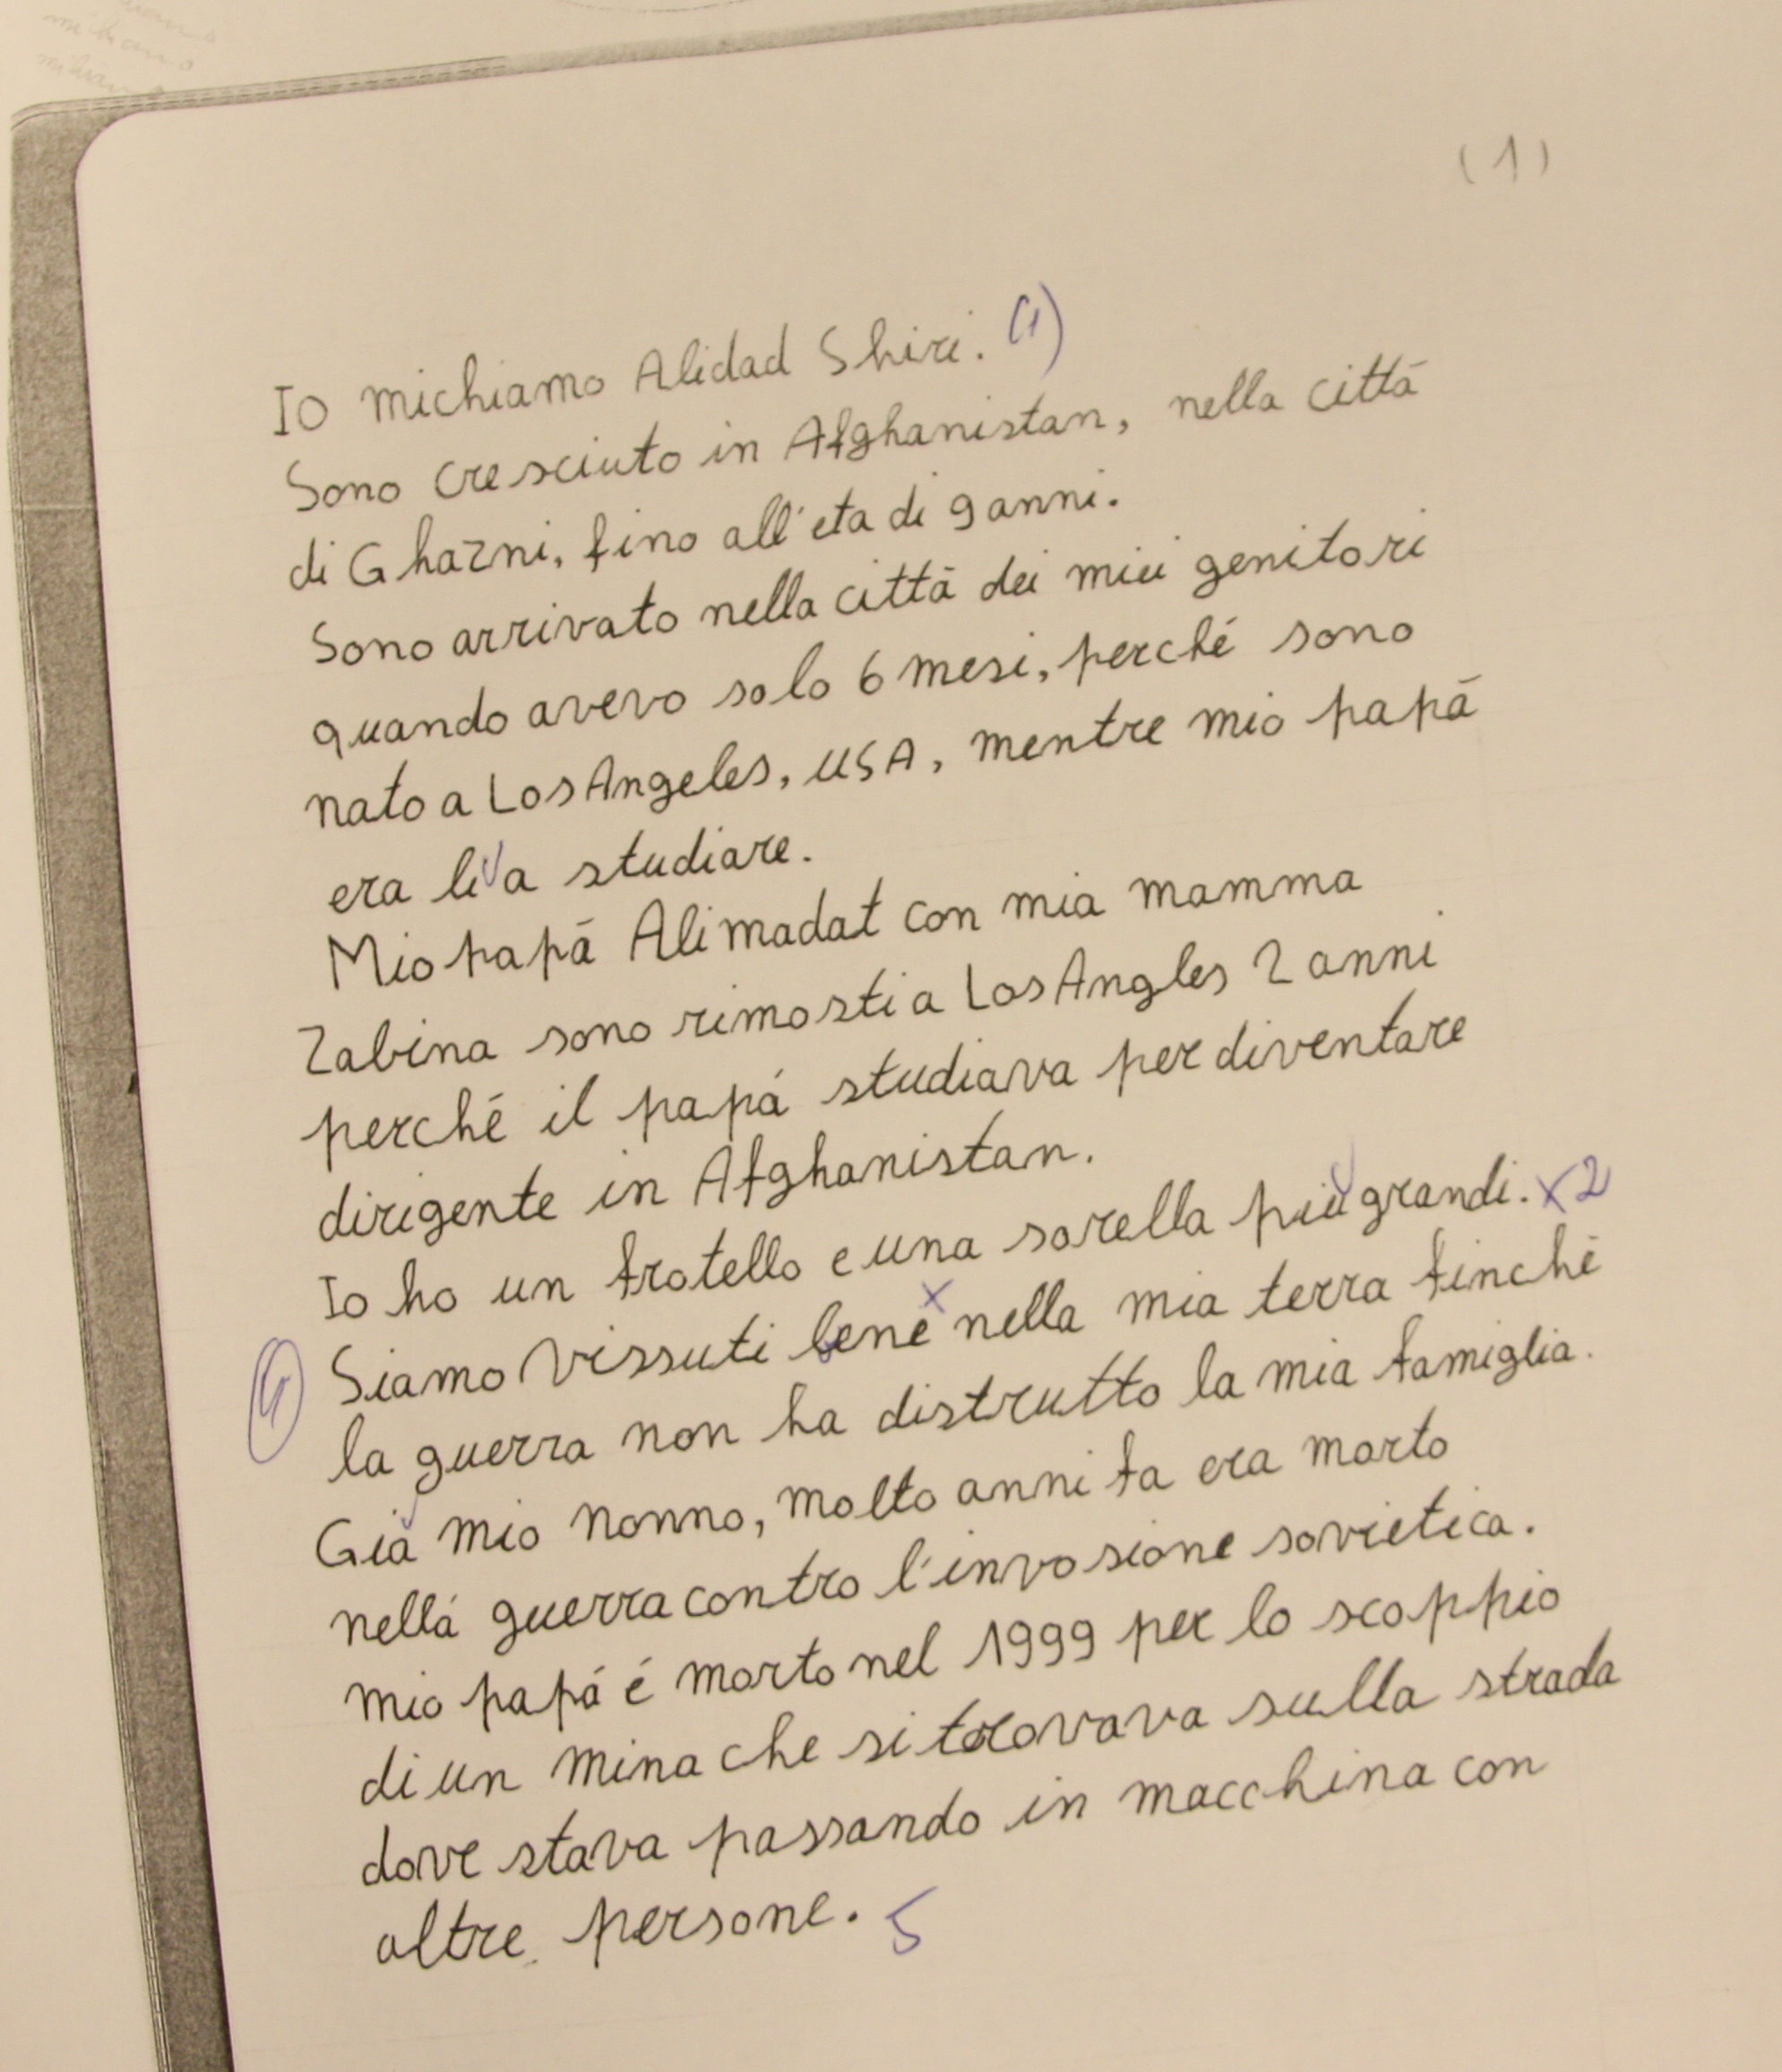 (1)
Io michiamo Alidad Shiri. (1)
Sono cresciuto in Afghanistan, nella città
di Ghazni, fino all'eta di 9 anni.
Sono arrivato nella città dei miei genitori
quando avevo solo 6 mesi, perché sono
nato a Los Angeles, USA, mentre mio papà
era li a studiare.
Mio papà Alimadat con mia mamma
Zabina sono rimasti a Los Angles 2 anni
perché il papá studiava per diventare
dirigente in Afghanistan.
Io ho un fratello e una sorella più grandi. x2
Siamo vissuti bene x nella mia terra finché
la guerra non ha distrutto la mia famiglia.
Già mio nonno, molto anni fa era morto
nellá guerra contro l'invasione sovietica.
mio papá é morto nel 1999 per lo scoppio
di un mina che si trovava sulla strada
dove stava passando in macchina con
altre persone. 5